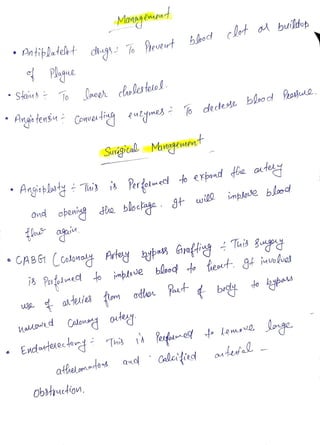 Management
• Antiplatelet drugs :- To Prevent blood clot or buildup
of Plaque
• Stains :- To lower cholesterol.
• Angiotensin :- Converting enzymes :- To decrese blood Pressure.
Surgical Management
• Angioplasty :- This is Performed to expand the artery
and opening the blockage. It will improve blood
flow again.
• CABG (Coronary Artery bypass Grafting :- This Surgery
is Performed to improve blood to heart. It involves
use of arteries from other Part of body to bypass
narrowed Coronary artery.
• Endarterectomy :- This is Performed to remove large
atheromatous and calcified arterial -
Obstruction.